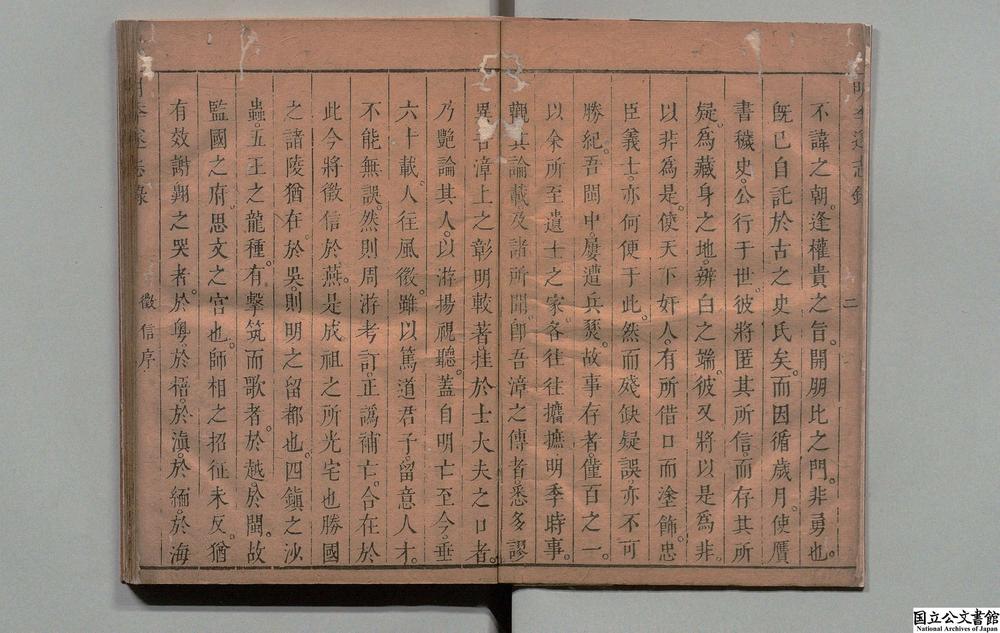 明季遂志錄
二
不諱之朝。逢權貴之旨。開朋比之門。非勇也。
旣已自託於古之史氏矣。而因循歲月。使贋
書穢史。公行于世。彼將匿其所信。而存其所
疑。爲藏身之地。辨白之端。彼又將以是爲非。
以非爲是。使天下奸人。有所借口而塗飾。忠
臣義士。亦何便于此。然而殘缺疑誤。亦不可
勝紀。吾閩中。屢遭兵燹。故事存者。僅百之一。
以余所至遺士之家。各往往攟摭明季時事。
觀其論載。及諸所聞。卽吾漳之傳者。悉多謬
異。吾漳上之彰明較著。挂於士大夫之口者。
乃艷論其人。以游揚視聽。蓋自明亡至今。垂
六十載。人往風微。雖以篤道君子。留意人才。
不能無誤。然則周游考訂。正譌補亡。合在於
此。今將徵信於燕。是成祖之所光宅也。勝國
之諸陵猶在。於吳。則明之留都也。四鎭之沙
蟲。五王之龍種。有擊筑而歌者。於越。於閩。故
監國之府。思文之宮也。師相之招征未反。猶
有效謝翺之哭者。於粵。於梧。於滇。於緬。於海
明季遂志錄
徵信序
国立公文書館
National Archives of Japan